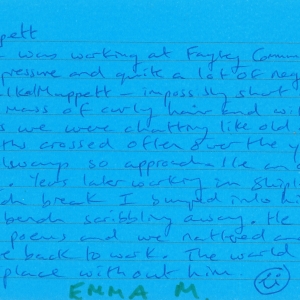 ppett
was working at Fagley Commun
pressure and quite a lot of neg
Ike Muppett - impossibly short
mass of curly hair and wil
s we were chatting like old
ths crossed often over the y
always so approachable an
. Years later working in Shipl
ch break I bumped into hi
bench scribbling away. He
poems and we nattered a
e back to work. The world
place without him.
EMMA M